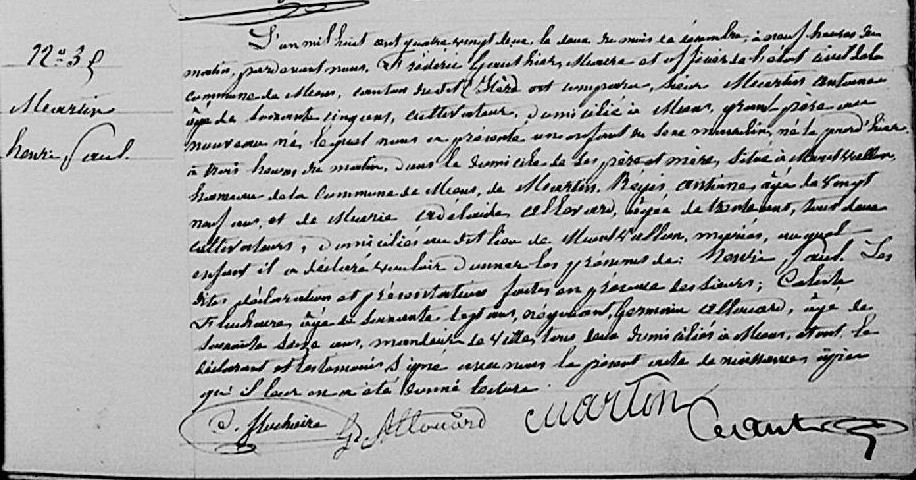 N° 35
Martin
henri Paul.
L'an mil huit cent quatre vingt deux, le douze du mois de décembre, à neuf heures du
matin, pardevant nous, Frédéric Gauthier, Maire et officier de l'état civil de la
commune de Mens, canton du dit, Isère ont comparu, sieur Martin Antoine
âgé de soixante cinq ans, cultivateur, domicilié à Mens, grand père au
nouveau né, lequel nous a présenté un enfant du sexe masculin, né le jour d'hier,
à trois heures du matin, dans le domicile de ses père et mère, situé à Montvallon,
hameau de la commune de Mens, de Martin, Régis Antoine, âgé de vingt
neuf ans, et de Marie Adélaïde Allouard, âgée de trente ans, tous deux
cultivateurs, domiciliés au dit lieu de Montvallon, mariés, auquel
enfant il a déclaré vouloir donner les prénoms de: henri Paul. Les
dites déclaration et présentation faites en présence des sieurs;
âgé de soixante sept ans, Germain Allouard, âgé de
soixante seize ans, de ville, tous deux domiciliés à Mens, et ont le
déclarant et les témoins signé avec nous le présent acte de naissance après
qu'il leur en a été donné lecture.
Gd Allouard Martin